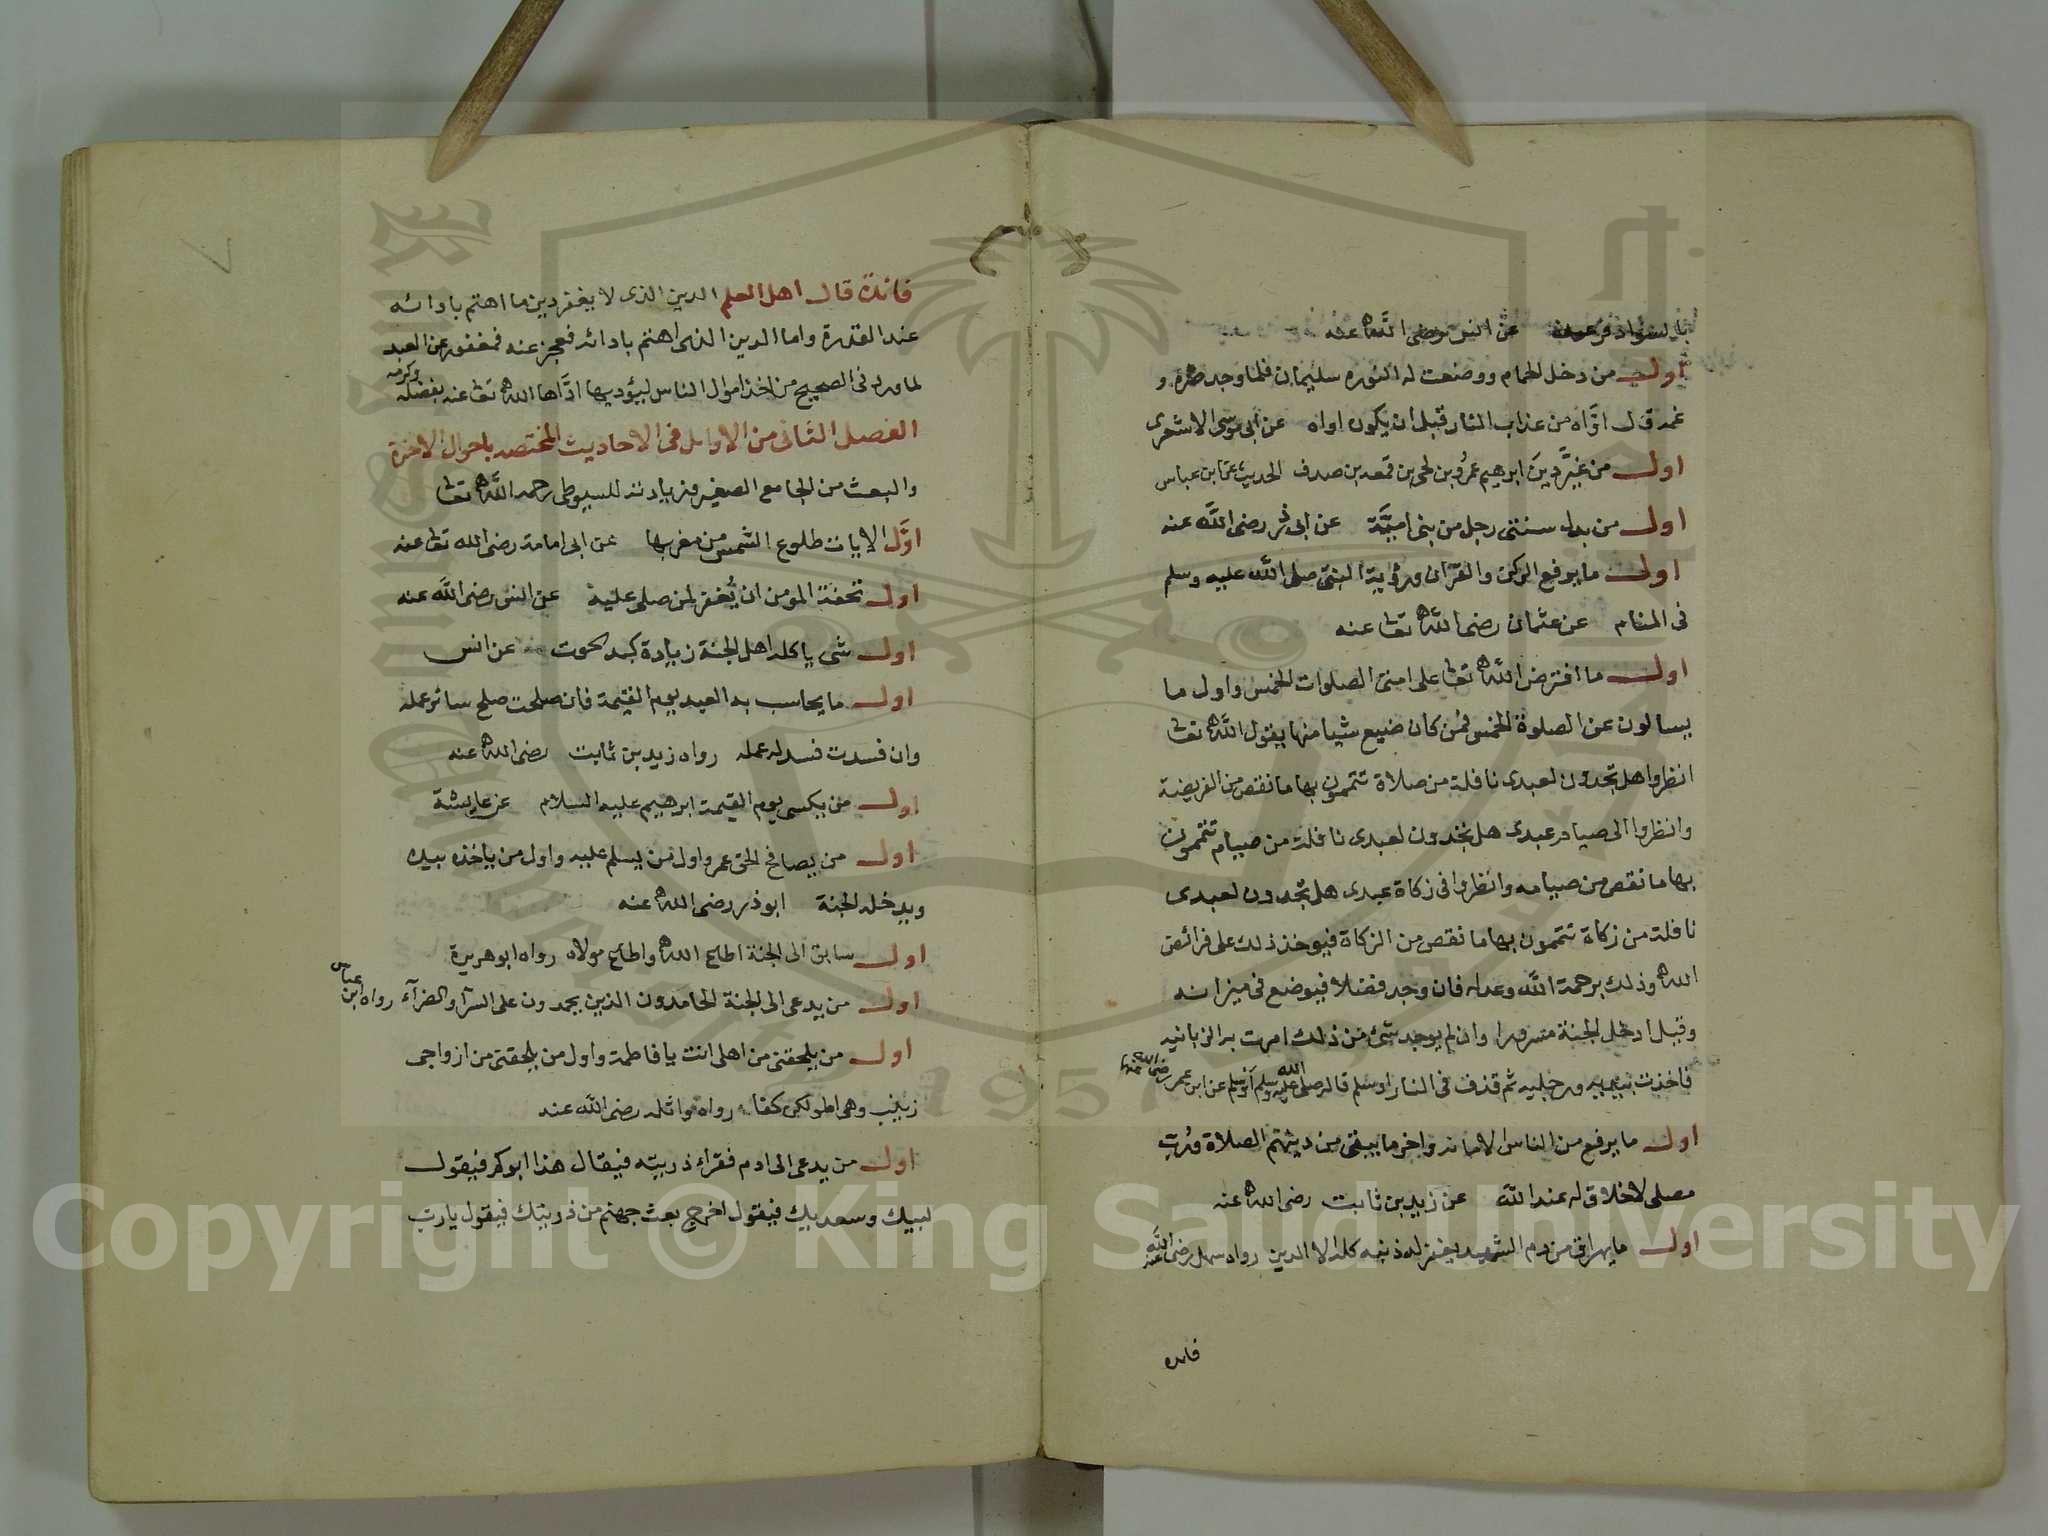 بالسواد فرعون عن انس رضى الله عنه
اول من دخل الحمام ووضعت له النوره سليمان فلما وجد حره و
غمه قال اوّاه من عذاب النار قبل ان يكون اواه عن ابى موسى الاشعرى
اول من غيَّر دينَ ابرهيم عمرُو بن لحى بن قمعه بن صدف الحديث عن ابن عباس
اول من بدل سنتى رجل من بنى اميَّة عن ابى ذر رضى الله عنه
اول ما يرفع الركن والقرآن ورؤية النبى صلى الله عليه وسلم
فى المنام عن عثمان رضى الله تعا عنه
اول ما افترض الله تعا على امتى الصلوات الخمس واول ما
يسالون عن الصلوة الخمس فمن كان ضيع شيا منها يقول الله تعا
انظروا هل تجدون لعبدى نافلة من صلاة تتممون بها ما نقص من الفريضة
وانظروا الى صيام عبدى هل تجدون لعبدى نافلة من صيام تتممون
بها ما نقص من صيامه وانظروا فى زكاة عبدى هل تجدون لعبدى
نافلة من زكاة تتممون بها ما نقص من الزكاة فيوخذ ذلك على فرائض
الله وذلك برحمة الله وعدله فان وجد فضلا فيوضع فى ميزانه
وقيل ادخل الجنة مسرورا وان لم يوجد شئ من ذلك امرت به الزبانيه
فاخذت بيديه ورجليه ثم قذف فى النار عن ابن عمر رضى الله عنهما
اول ما يرفع من الناس الامانه واخر ما يبقى من دينهم الصلاة ورُب
مصلى لا خلاق له عند الله عن زيد بن ثابت رضى الله عنه
اول ما يهراق من دم الشهيد يغفر له ذنبه كله الا الدين رواه سهل رضى الله عنه
فائده
فائدة قال اهل العلم الدين الذى لا يغفر دين ما اهتم بادائه
عند القدرة واما الدين الذى اهتم بادائه فعجز عنه فمغفور عن العبد
لما ورد فى الصحيح من اخذ اموال الناس ليؤديها ادَّاها الله تعا عنه بفضله وكرمه
الفصل الثانى من الاوايل فى الاحاديث المختصه باحوال الاخرة
والبعث من الجامع الصغير وزيادته للسيوطى رحمه الله تعا
اوَّل الايات طلوع الشمس من مغربها عن ابى امامة رضى الله تعا عنه
اول تحفة المومن ان يُغفر لمن صلى عليه عن انس رضى الله عنه
اول شى ياكله اهل الجنة زيادة كبد الحوت عن انس
اول ما يحاسب به العبد يوم القيمة فان صلحت صلح سائر عمله
وان فسدت فسد له عمله رواه زيد بن ثابت رضى الله عنه
اول من يكسى يوم القيمة ابرهيم عليه السلام عن عايشة
اول من يصافح الحق عمر واول من يسلم عليه واول من ياخذه بيده
ويدخله الجنة ابو ذر رضى الله عنه
اول سابق الى الجنة اطاع الله واطاع مولاه رواه ابو هريرة
اول من يدعى الى الجنة الحامدون الذين يحمدون على السرآ والضرآء رواه ابن عباس
اول من يلحقنى من اهلى انت يا فاطمة واول من يلحقنى من ازواجى
زينب وهى اطولكن كفا رواه واثلة رضى الله عنه
اول من يدعى الى ادم فقراء ذريته فيقال هذا ابوكم فيقول
لبيك وسعديك فيقول اخرج بعث جهنم من ذريتك فيقول يا رب
1957
Copyright © King Saud University